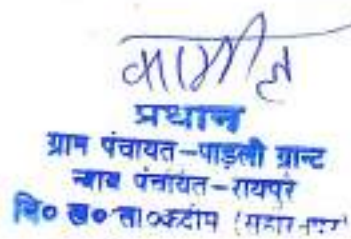 प्रधान
ग्राम पंचायत-पाड़ली ग्रान्ट
न्याय पंचायत-रायपुर
वि० ख० सा०कदीम